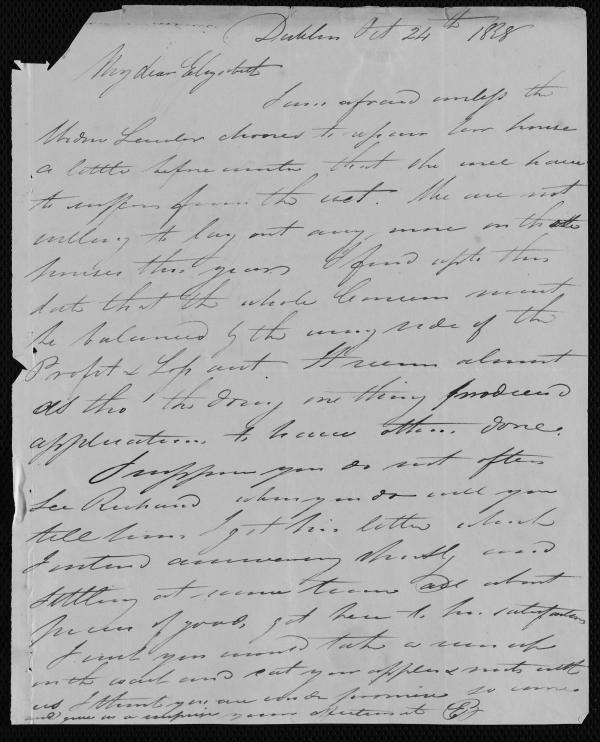 Dublin Oct 24th 1828
My dear Elizabeth
I am afraid unless the
Widow Lawlor chooses to repair her house
a little before winter that she will have
to suffer from the wet. We are not
willing to lay out any more on these
houses this year. I find up to this
date that the whole Concern must
be balanced by the wrong side of the
Profit & Loss acct. It seems almost
as tho' the doing one thing produced
applications to have others done.
I suppose you do not often
See Richard when you do will you
tell him I got his letter which
I intend answering shortly and
settling at same time all about
prices of goods got here to his satisfaction
I wish you would take a run up
in the coach and eat your apples & nuts with
us I think you are under promise so come
and give us a surprise yours affectionately